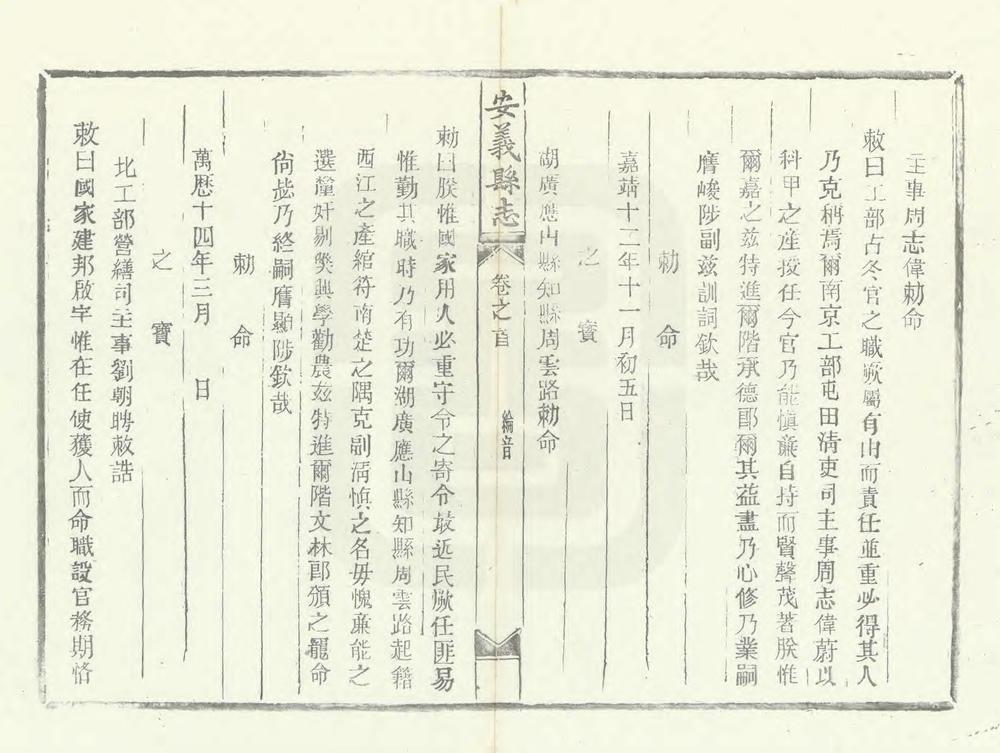 主事周志偉勅命
敕曰工部占冬官之職厥屬有四而責任並重必得其人
乃克稱焉爾南京工部屯田淸吏司主事周志偉蔚以
科甲之産授任今官乃能慎亷自持而賢聲茂著朕惟
爾嘉之兹特進爾階承德郎爾其益盡乃心修乃業嗣
膺峻陟副兹訓詞欽哉
勅命
嘉靖十二年十一月初五日
之寳
湖廣應山縣知縣周雲路勅命
安義縣志
卷之首
綸音
勅曰朕惟國家用人必重守令之寄令最近民厥任匪易
惟勤其職時乃有功爾湖廣應山縣知縣周雲路起籍
西江之產綰符南楚之隅克副淸慎之名毋愧亷能之
選釐奸剔弊興學勸農兹特進爾階文林郎頒之寵命
尙毖乃終嗣膺顯陟欽哉
勅命
萬歷十四年三月　日
之寳
北工部營繕司主事劉朝聘敕誥
敕曰國家建邦啟宇惟在任使獲人而命職設官務期恪